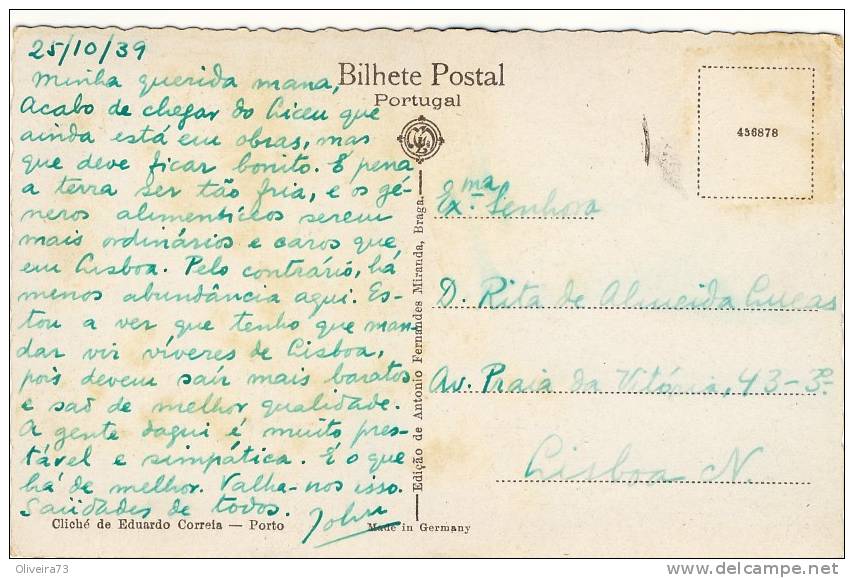 25/10/39
Minha querida mana,
Acabo de chegar do Liceu que
ainda está em obras, mas
que deve ficar bonito. É pena
a terra ser tão fria, e os gé-
neros alimentíceos serem
mais ordinários e caros que
em Lisboa. Pelo contrário, há
menos abundância aqui. Es-
tou a ver que tenho que man-
dar vir víveres de Lisboa,
pois devem saír mais baratos
e saõ de melhor qualidade.
A gente daqui é muito pres-
tável e simpática. É o que
há de melhor. Valha-nos isso.
Saüdades de todos.
Cliché de Eduardo Correia — Porto
Bilhete Postal
Portugal
Edição de Antonio Fernandes Miranda, Braga.
Made in Germany
456878
Ex.ma Senhora
D. Rita de Almeida Lucas
Av. Praia da Vitória, 43-3º
Lisboa N.
Oliveira73
delcampe.net